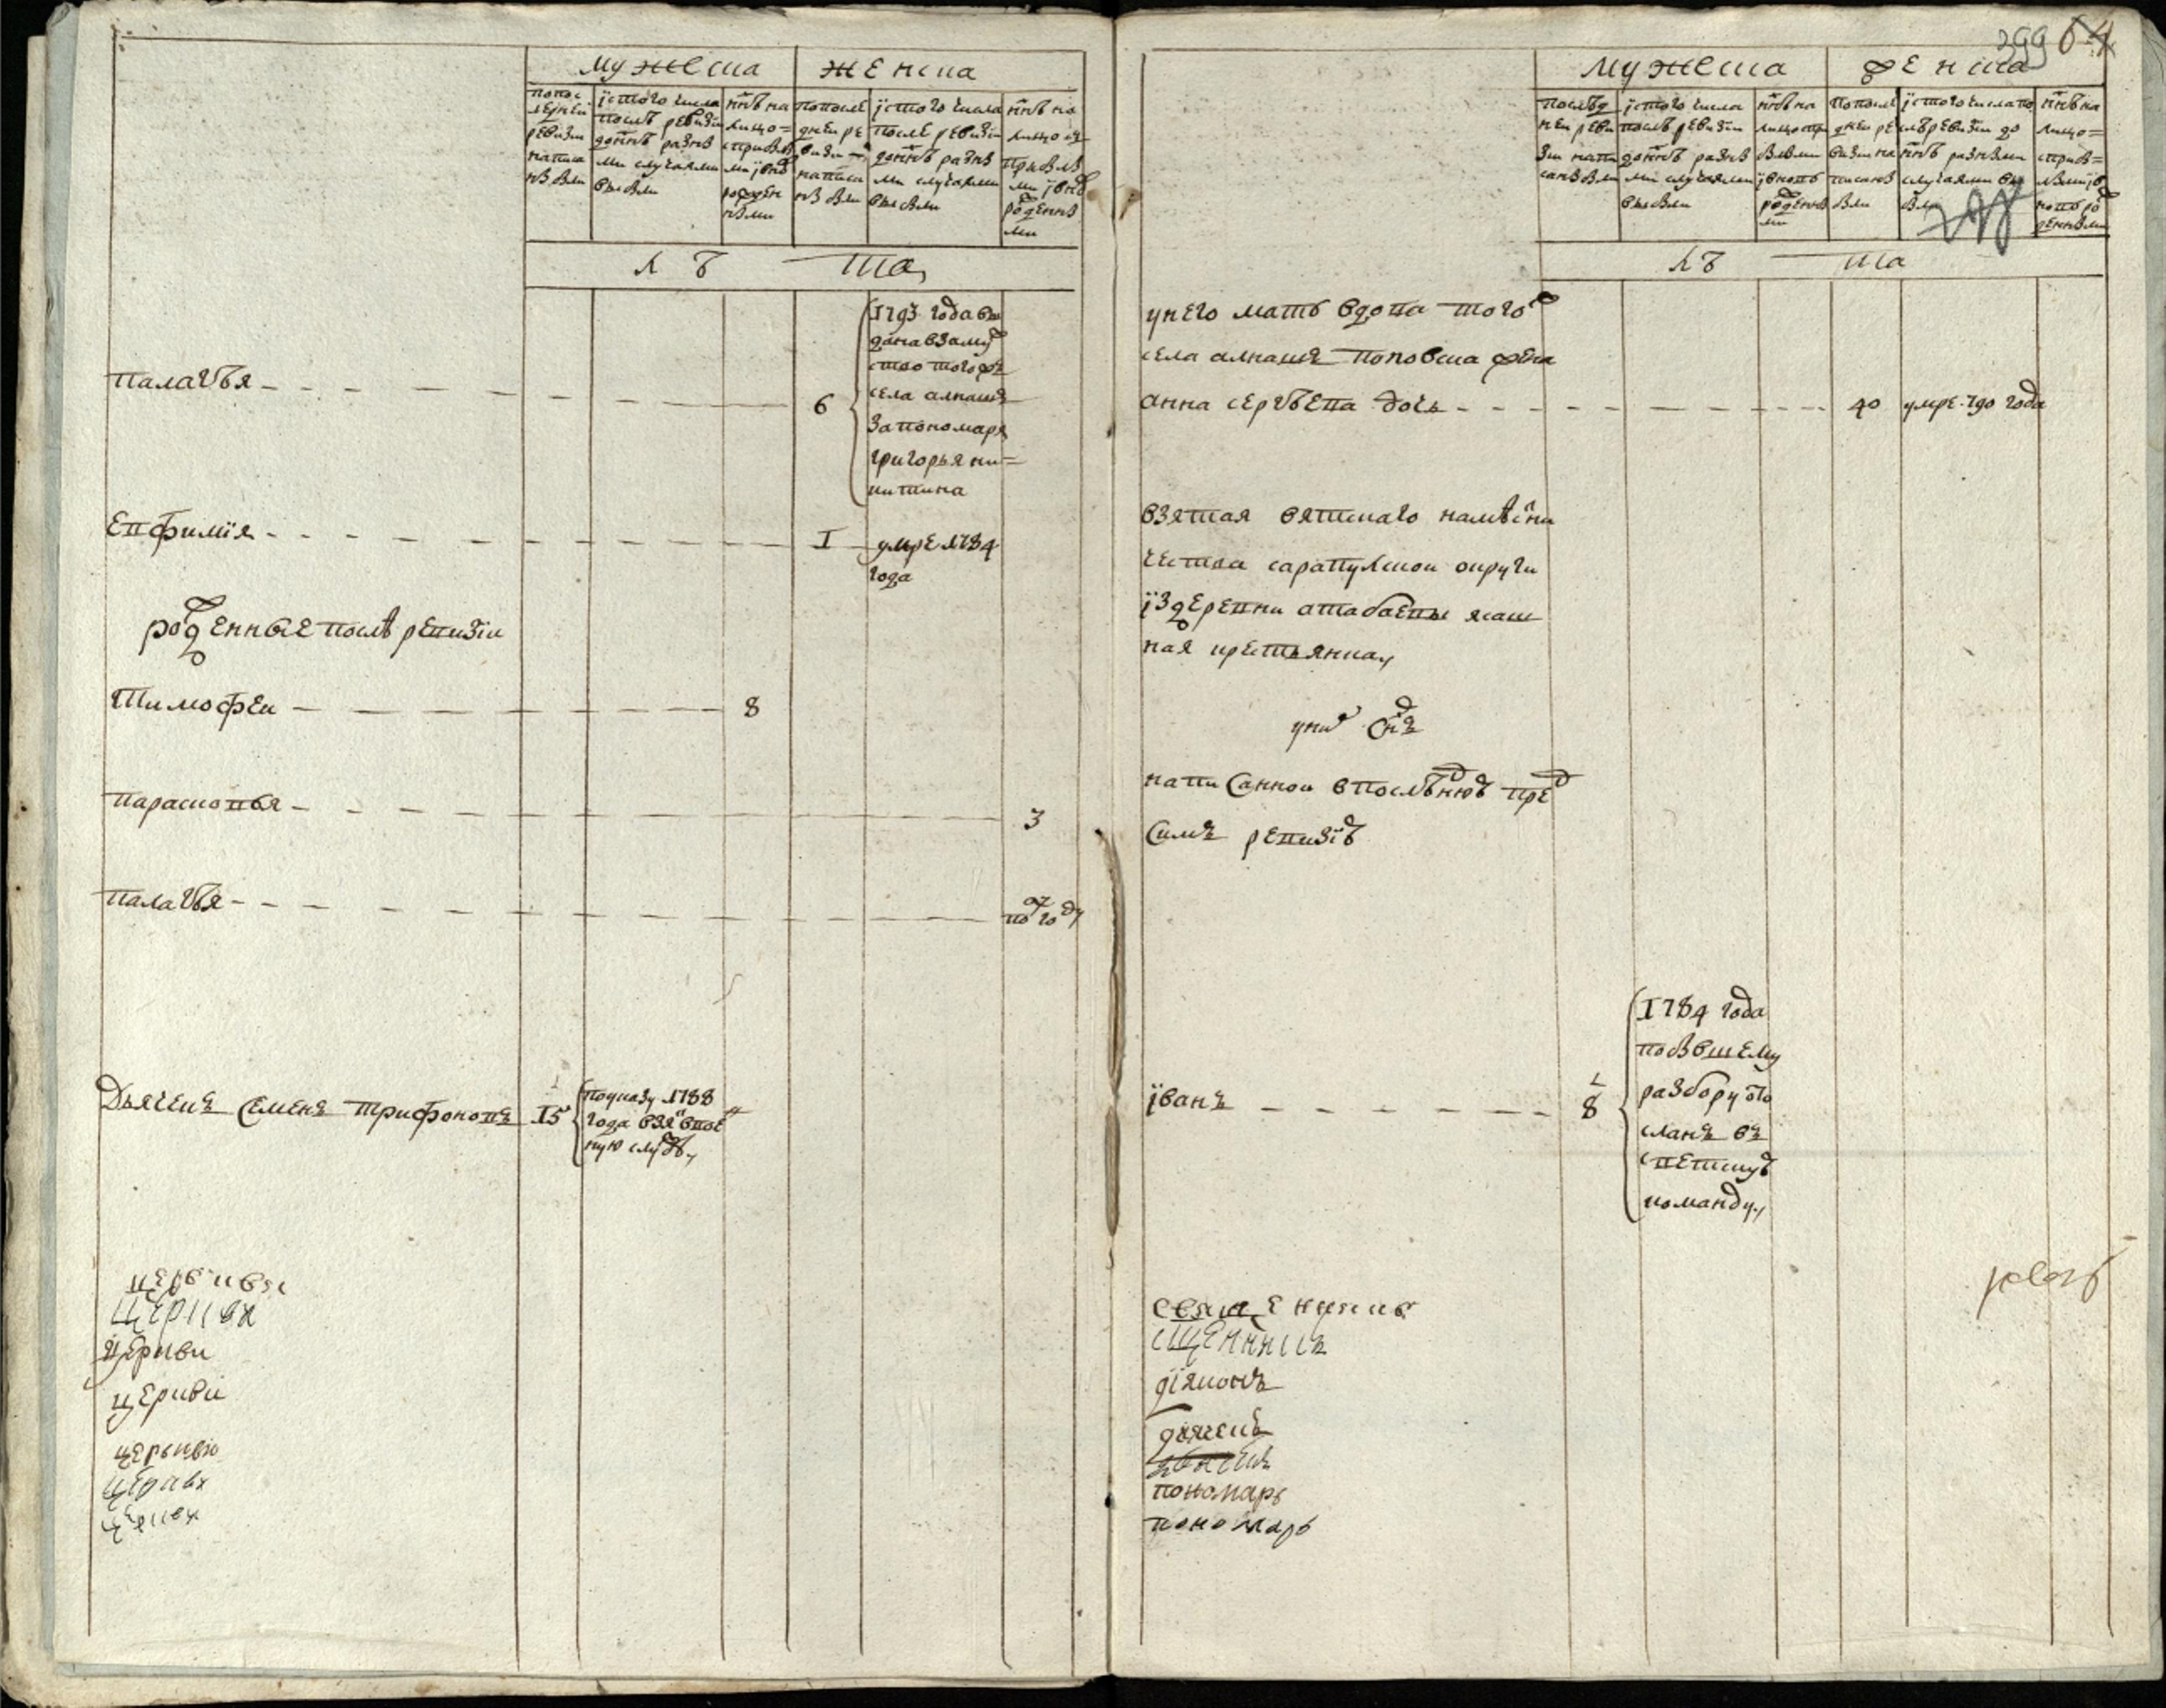 мужеска
женска
попос
леднеи
ревизии
написа
ннымъ
їстого числа
послѣ ревизiи
до ннѣ разны
ми случаями
выбыли
ннѣ на
лицо =
сприбы
лы
ми i вно
рожден
ными
попосле
днеи ре
визи
написа
їстого числа
после ревизiи
до ннѣ разны
ми случаями
выбыли
ннѣ на
лицо съ
прибылы
ми i вно
рожденны
ми
лѣ та
палагѣя
6
1793 года вы
дана взамуж
ство того жъ
села алнашъ
за пономаря
григорья ни=
китина
Евфимїя
1
умре 1784
года
рожденные послѣ ревизїи
Тимофеи
8
парасковья
3
палагѣя
полгоду
Дьячекъ Семенъ трифоновъ
15
поуказу 1788
года взятъввоен
ную службу
церкви
церкви
церкви
церкви
церькви
церкви
церкви
299 64
мужеска
женска
послѣд
неи реви
зiи напи
саны были
їстого числа
послѣ ревизїи
до ннѣ разны
ми случаями
выбыли
ннѣ на
лицо при
былыми
i вновь
рожденны
ми
попосле
днеи ре
визи на
писаны
были
їстого числа по
слѣ ревизїи до
ннѣ разными
случаями вы
были
ннѣ на
лицо =
сприб=
лыми i в
новь ро
жденными
298
лѣ та
унего мать вдова того ж
села алнашъ поповска жена
анна сергѣева дочь
40
умре 790 года
взятая вятскаго намѣсни
чества сарапулскои округи
їздеревни атабаевы ясаш
ная крестьянка
уних снъ
написаннои впослѣднюю пред
симъ ревизїю
їванъ
8
1784 года
побывшему
разбору ото
сланъ въ
светскую
команду
священникъ
сщенникъ
дїяконъ
дьячекъ
пономарь
пономарь